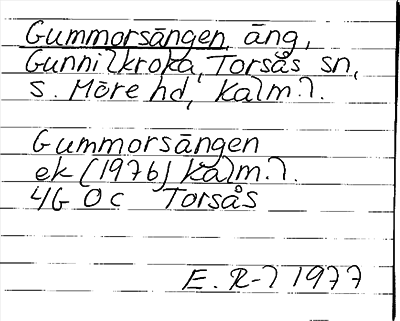 Gummorsängen, äng,
Gunnilkroka, Torsås sn,
S. Möre hd, Kalm. l.
Gummorsängen
ek (1976) Kalm. l.
4G 0c Torsås
E. R-l 1977